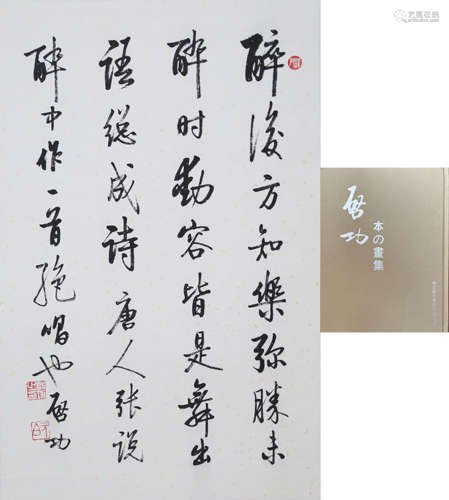 醉後方知樂弥勝未
醉时動容皆是舞出
语總成诗唐人张说
醉中作一首絶唱也启功
启功
本の畫集